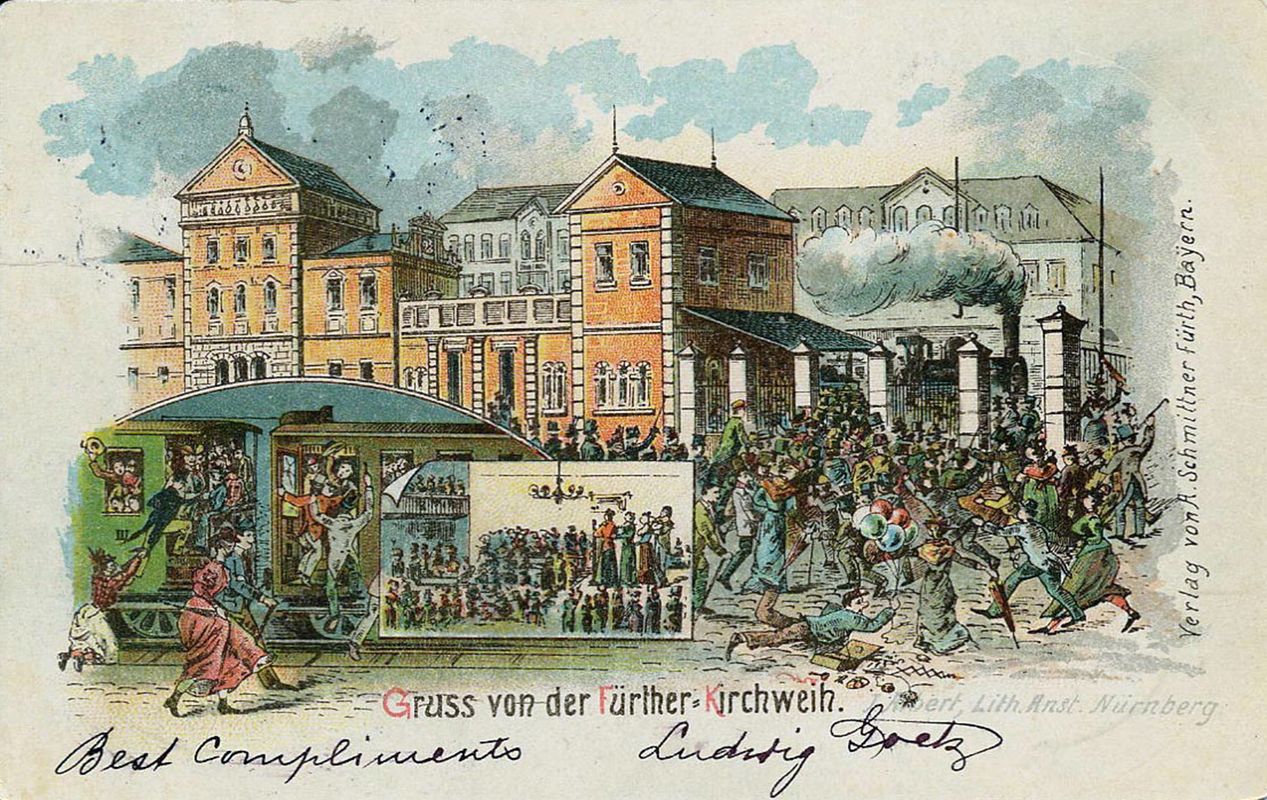 III
Gruss von der Fürther=Kirchweih.
Lith. Anst. Nürnberg.
Best Compliments Ludwig Goetz
Verlag von A. Schmittner Fürth, Bayern.